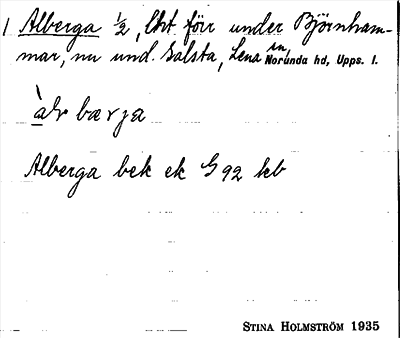 1 Alberga ½, lht förr under Björnham-
mar, nu und. Salsta, Lena sn, Norunda hd, Upps. l.
Alberga bek ek G 92 kb
STINA HOLMSTRÖM 1935